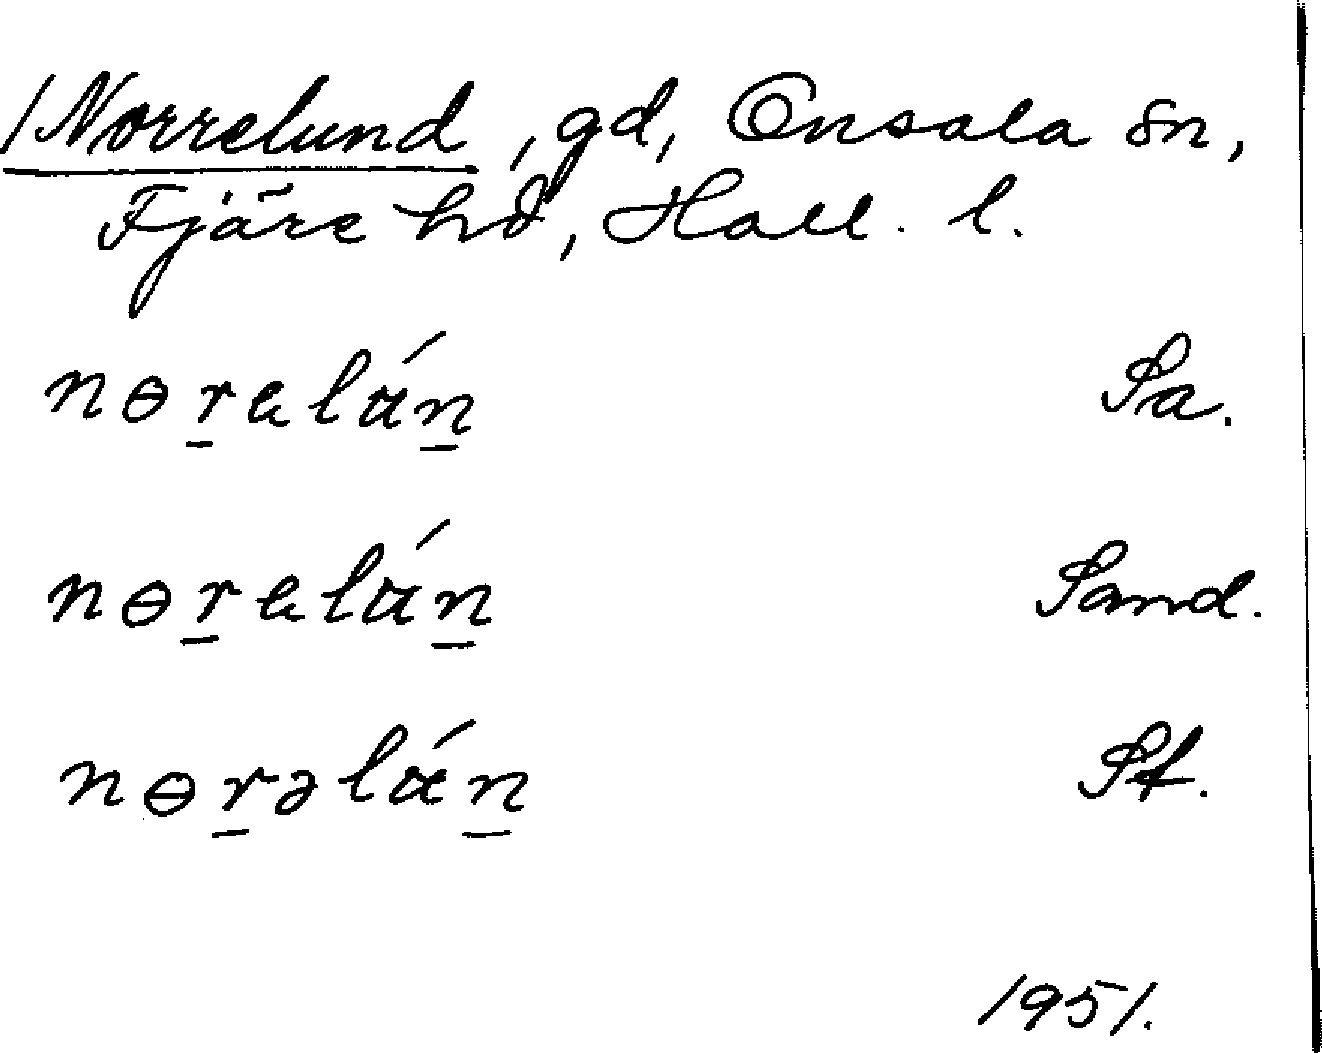 /Norrelund, gd, Onsala sn,
Fjäre hd, Hall. l.
nɵr̲elán̲ Sa.
nɵr̲elán̲ Sand.
nɵr̲əlán̲ Sf.
1951.